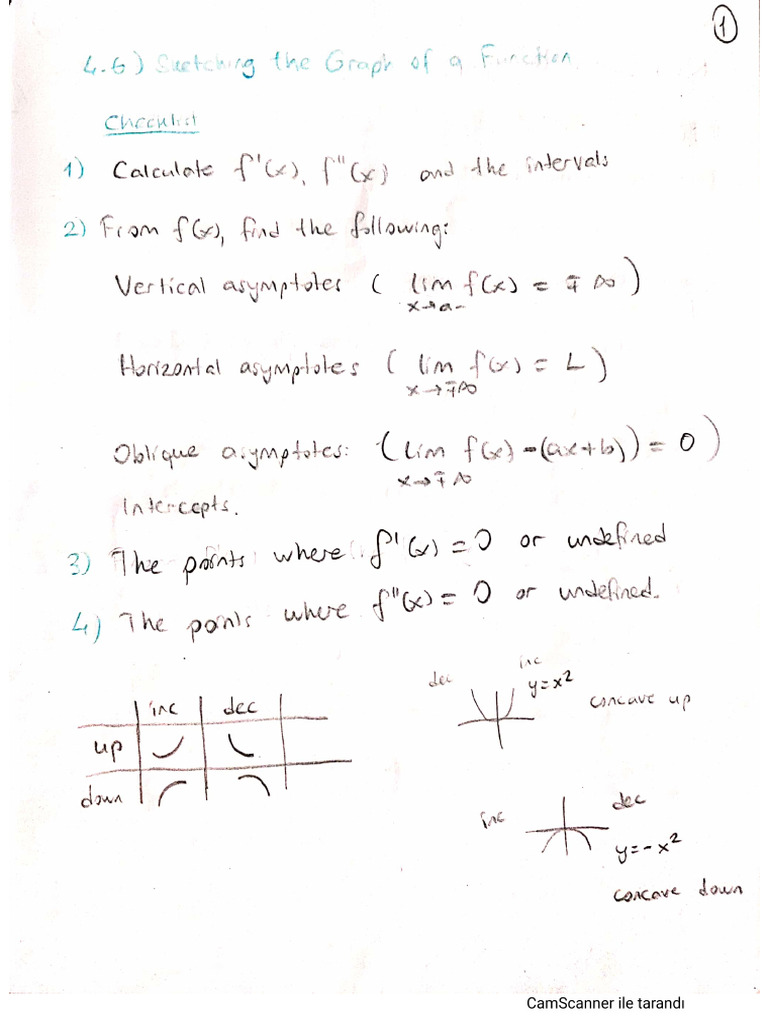 1
4.6) Sketching the Graph of a Function
Checklist
1) Calculate f'(x), f''(x) and the intervals
2) From f(x), find the following:
Vertical asymptotes ( lim f(x) = ∓∞ )
x→a-
Horizontal asymptotes ( lim f(x) = L )
x→∓∞
Oblique asymptotes: (lim f(x) - (ax+b)) = 0 )
x→∓∞
Intercepts.
3) The points where f'(x) = 0 or undefined
4) The points where f''(x) = 0 or undefined.
inc dec
up
down
dec inc
y=x²
concave up
inc dec
y=-x²
concave down
CamScanner ile tarandı